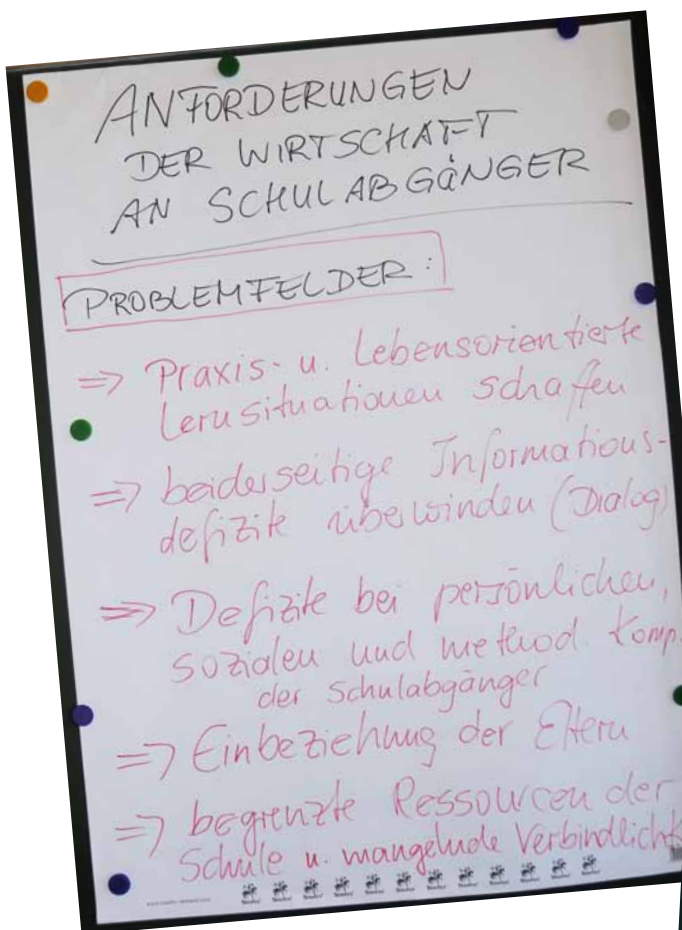 ANFORDERUNGEN
DER WIRTSCHAFT
AN SCHULABGÄNGER
PROBLEMFELDER:
=> Praxis- u. Lebensorientierte
Lernsituationen schaffen
=> beiderseitige Informations-
defizite überwinden (Dialog)
=> Defizite bei persönlichen,
sozialen und method. Komp.
der Schulabgänger
=> Einbeziehung der Eltern
=> begrenzte Ressourcen der
Schule u. mangelnde Verbindlichk